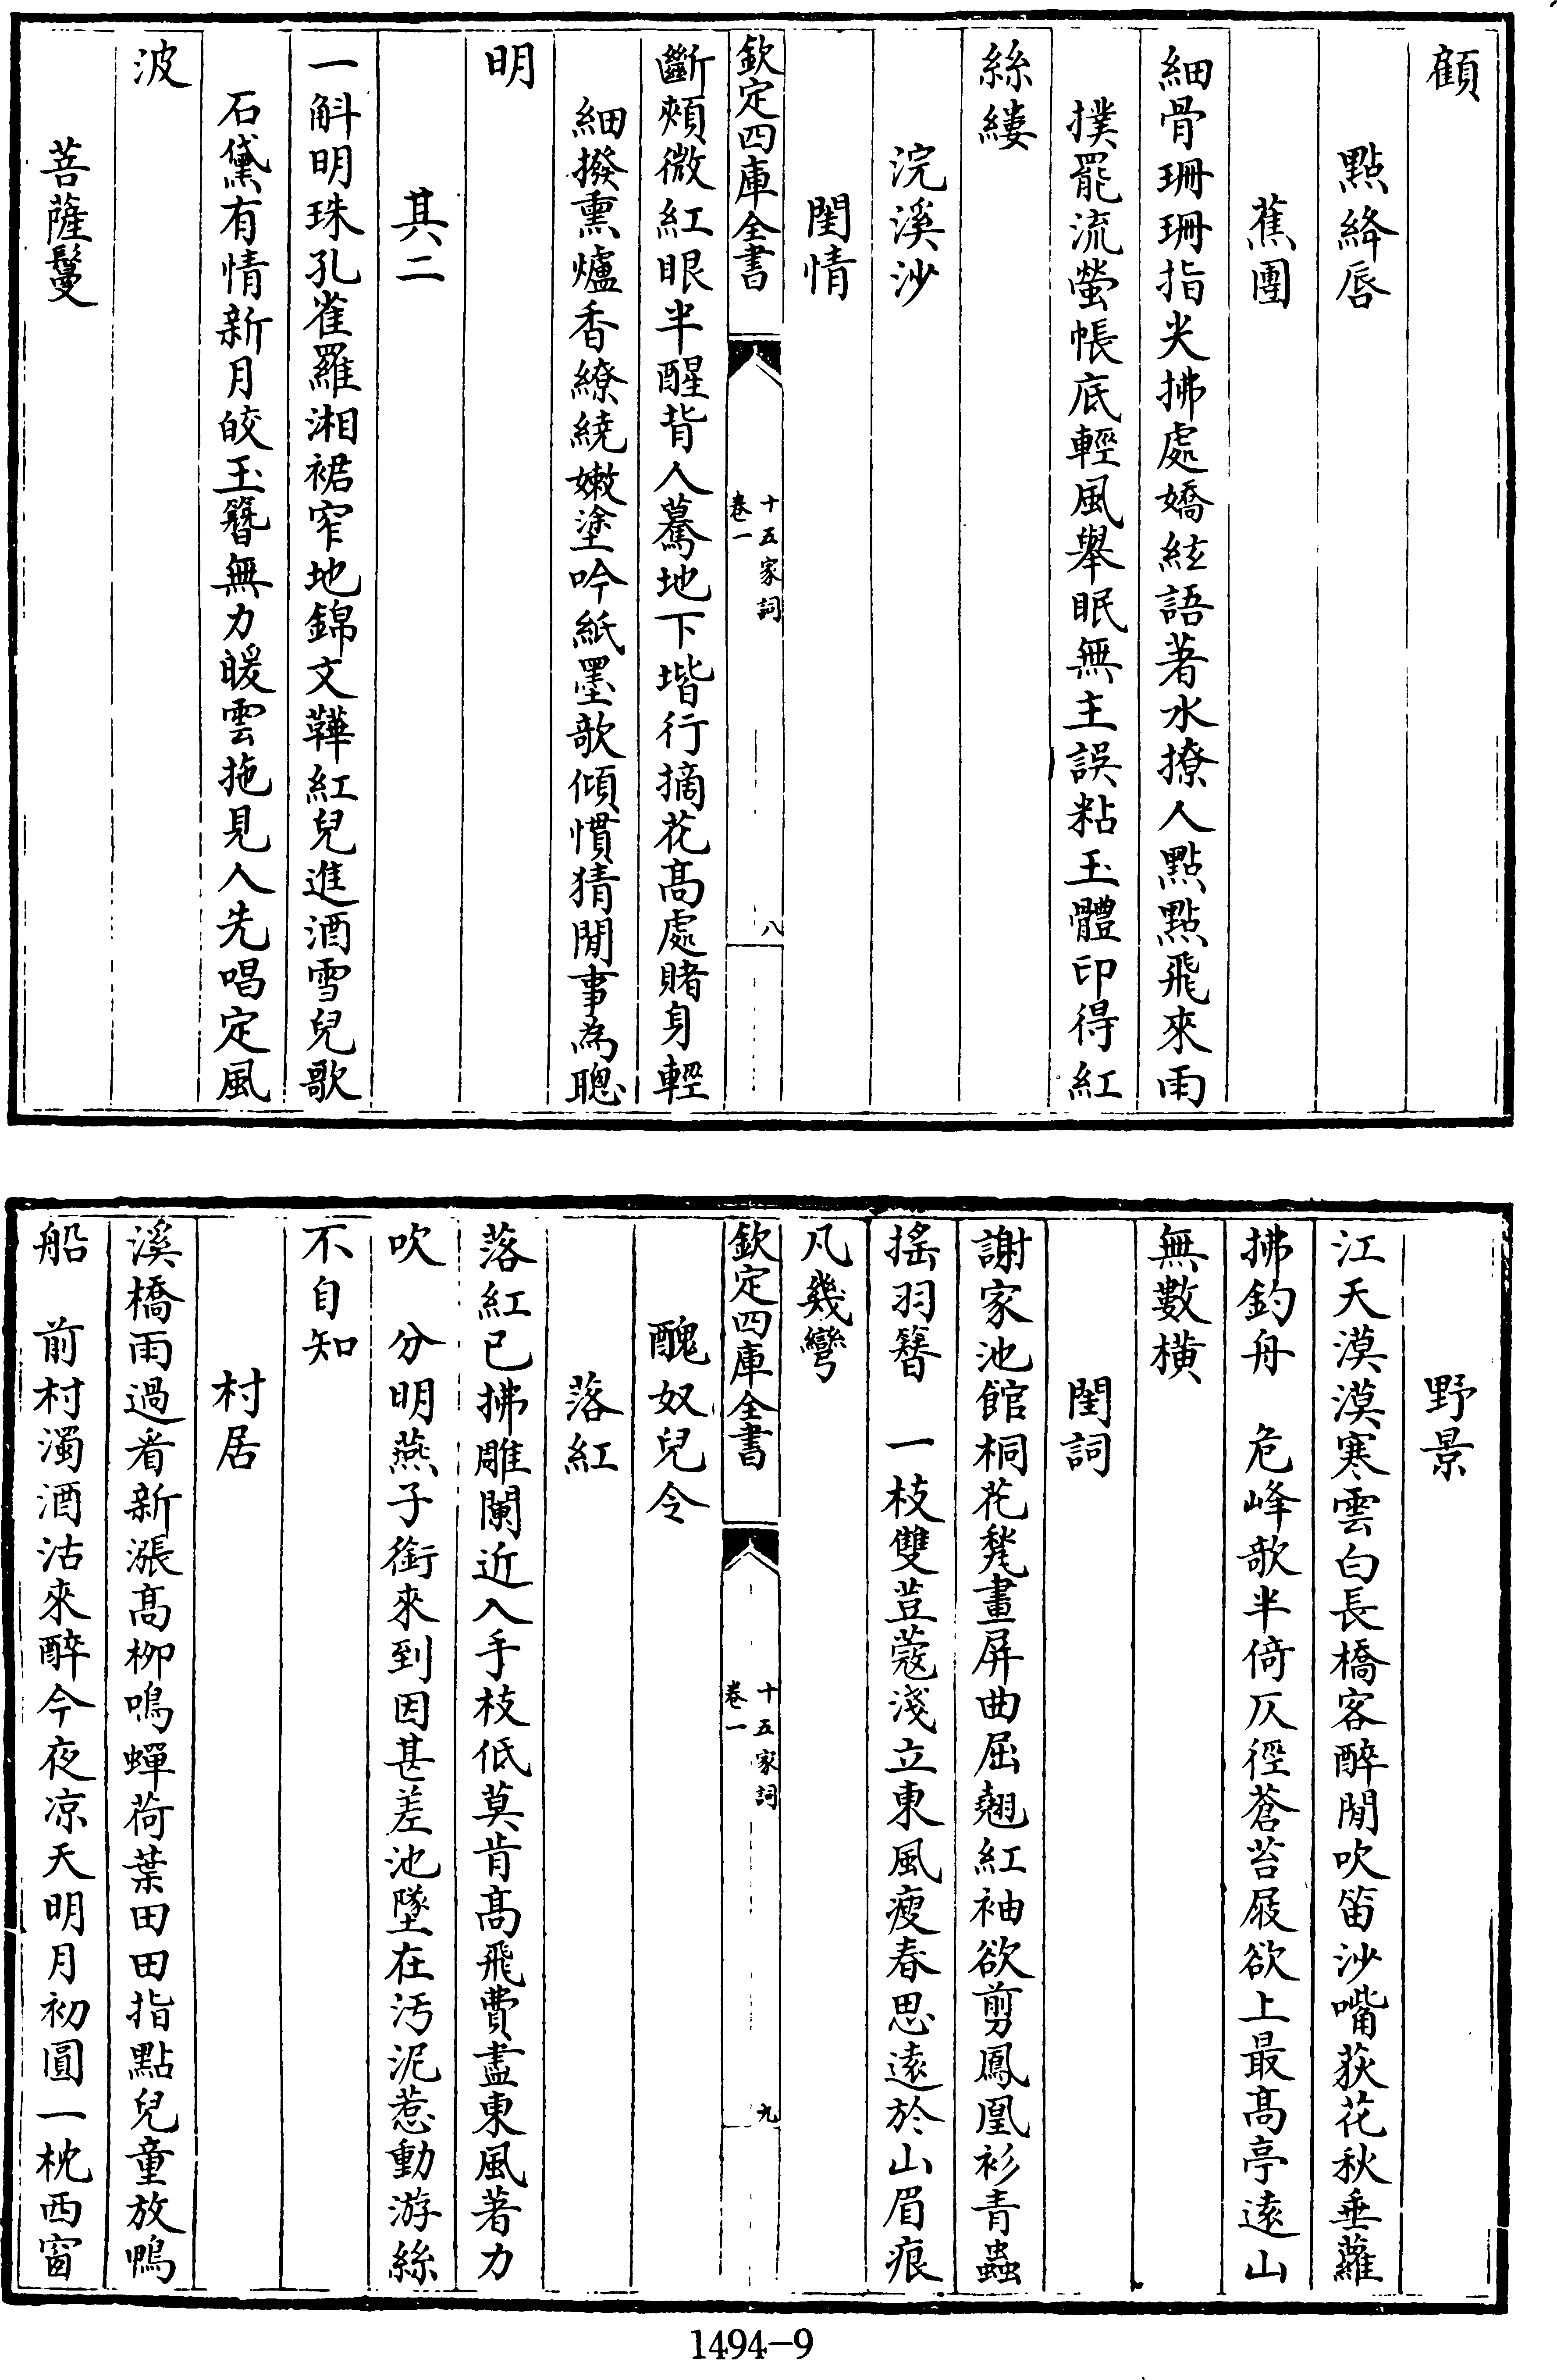 顧
點絳唇
蕉團
細骨珊珊指尖拂處嬌絃語著水撩人點點飛來雨
撲罷流螢帳底輕風舉眠無主誤粘玉體印得紅
絲縷
浣溪沙
閨情
欽定四庫全書
十五家詞
卷一
八
斷頰微紅眼半醒背人驀地下堦行摘花高處賭身輕
細撥熏爐香繚繞嫩塗吟紙墨欹傾慣猜閒事為聰
明
其二
一斛明珠孔雀羅湘裙窄地錦文鞾紅兒進酒雪兒歌
石黛有情新月皎玉簪無力暖雲拖見人先唱定風
波
菩薩鬘
野景
江天漠漠寒雲白長橋客醉閒吹笛沙嘴荻花秋垂蘿
拂釣舟　危峰欹半倚仄徑蒼苔屐欲上最高亭遠山
無數橫
閨詞
謝家池館桐花甃畫屏曲屈翹紅袖欲剪鳳凰衫青蟲
搖羽簪　一枝雙荳蔻淺立東風瘦春思遠於山眉痕
凡幾彎
欽定四庫全書
十五家詞
卷一
九
醜奴兒令
落紅
落紅已拂雕闌近入手枝低莫肯高飛費盡東風著力
吹　分明燕子銜來到因甚差池墜在汚泥惹動游絲
不自知
村居
溪橋雨過看新漲高柳鳴蟬荷葉田田指點兒童放鴨
船　前村濁酒沽來醉今夜凉天明月初圓一枕西窗
1494-9